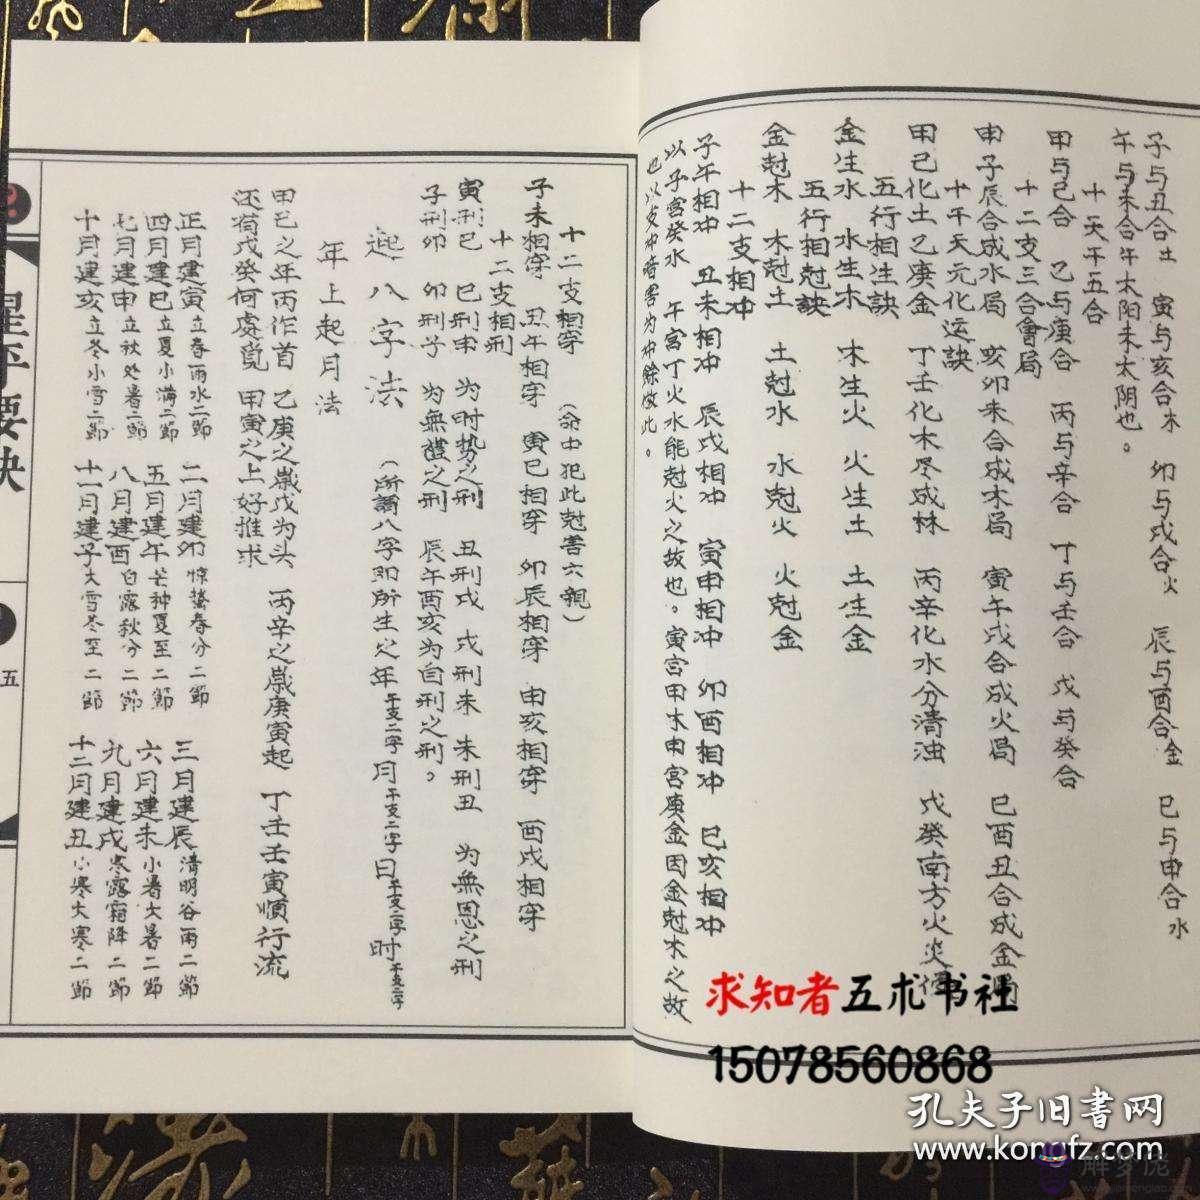 子与丑合土 寅与亥合木 卯与戌合火 辰与酉合金 巳与申合水
午与未合午太阳未太阴也。
十天干五合
甲与己合 乙与庚合 丙与辛合 丁与壬合 戊与癸合
十二支三合會局
申子辰合成水局 亥卯未合成木局 寅午戌合成火局 巳酉丑合成金局
十干天元化运訣
甲己化土乙庚金 丁壬化木尽成林 丙辛化水分清浊 戊癸南方火炎
五行相生訣
金生水 水生木 木生火 火生土 土生金
五行相尅訣
金尅木 木尅土 土尅水 水尅火 火尅金
十二支相冲
子午相冲 丑未相冲 辰戌相冲 寅申相冲 卯酉相冲 巳亥相冲
以子宫癸水 午宫丁火水能尅火之故也。寅宫甲木申宫庚金因金尅木之故
也以支冲暗害为冲餘倣此。
十二支相穿 (命中犯此尅害六親)
子未相穿 丑午相穿 寅巳相穿 卯辰相穿 申亥相穿 酉戌相穿
十二支相刑
寅刑巳 巳刑申 为时势之刑 丑刑戌 戌刑未 未刑丑 为無恩之刑
子刑卯 卯刑子 为無禮之刑 辰午酉亥为自刑之刑。
起八字法 (所謂八字即所生之年干支二字月干支二字日干支二字时干支二字
年上起月法
甲己之年丙作首 乙庚之歲戊为头 丙辛之歲庚寅起 丁壬壬寅順行流
还有戊癸何處覓 甲寅之上好推求
正月建寅立春雨水二節 二月建卯惊蟄春分二節 三月建辰清明谷雨二節
四月建巳立夏小满二節 五月建午芒种夏至二節 六月建未小暑大暑二節
七月建申立秋处暑二節 八月建酉白露秋分二節 九月建戌寒露霜降二節
十月建亥立冬小雪二節 十一月建子大雪冬至二節 十二月建丑小寒大寒二節
星平要訣
五
求知者五术书社
15078560868
孔夫子旧書网
www.kongfz.com
解梦佬